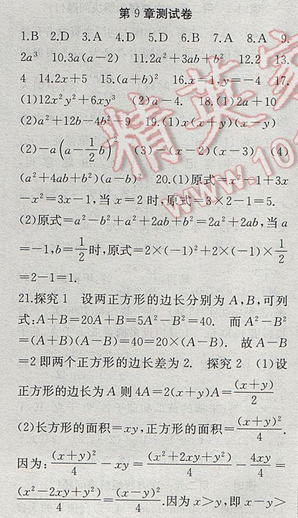 第9章测试卷
1.B 2.D 3.A 4.D 5.D 6.B 7.A 8.A 9.
2a³ 10.3a(a-2) 11.2a²+3ab+b² 12.2 13.
4 14.2x+5 15.(a+b)² 16.x-1,y=-4 17.
(1)12x²y²+6xy³ (2)a-4 18.(1)2a+10
(2)a²+12b-4b²-9 19.(1)x(x+y)(x-y)
(2)-a(a-1/2 b)² (3)-(x-2)(x-3) (4)
(a²+4ab+b²)(a-b)² 20.(1)原式=x²-1+3x
-x²=3x-1,当x=2时,原式=3×2-1=5.
(2)原式=a²-b²+a²+2ab+b²=2a²+2ab,当a
=-1,b=1/2时,原式=2×(-1)²+2×(-1)×1/2
=2-1=1.
21.探究1 设两正方形的边长分别为A,B,可列
式:A+B=20A+B=5A²-B²=40. 而A²-B²
=(A+B)(A-B)=40=20×(A-B). 故A-B
=2即两个正方形的边长差为2. 探究2 (1)设
正方形的边长为A则4A=2(x+y)A=(x+y)/2
(2)长方形的面积=xy,正方形的面积=(x+y)²/4.
因为:(x+y)²/4-xy=(x²+2xy+y²)/4-4xy/4=
(x²-2xy+y²)/4=(x-y)²/4.因为x>y,即x-y>